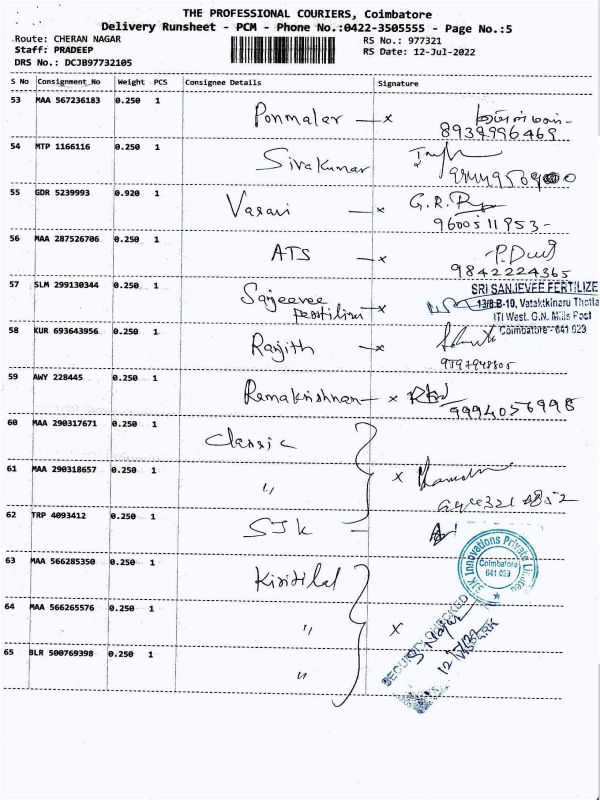 THE PROFESSIONAL COURIERS, Coimbatore
Delivery Runsheet - PCM - Phone No.:0422-3505555 - Page No.:5
Route: CHERAN NAGAR
Staff: PRADEEP
DRS No.: DCJB97732105
RS No.: 977321
RS Date: 12-Jul-2022
S No Consignment_No Weight PCS Consignee Details Signature
53 MAA 567236183 0.250 1 Ponmalar — x
8939996469
54 MTP 1166116 0.250 1 Sivakumar
55 GDR 5239993 0.920 1 Vasavi — x G.R.
9600511953-
56 MAA 287526706 0.250 1 ATS — x
9842224365
57 SLM 299130344 0.250 1 Sanjeevee — x
SRI SANJEVEE FERTILIZE
13/8 B-10, Vataktkinaru Thotta
ITI West. G.N. Mills Post
Coimbatore - 641 029
58 KUR 693643956 0.250 1 Ranjith — x
59 AWY 228445 0.250 1 Ramakrishnan — x
9994056998
60 MAA 290317671 0.250 1 Classic
61 MAA 290318657 0.250 1 " x
62 TRP 4093412 0.250 1 SJK —
SJK Innovations Private Limited
Coimbatore
641 029
63 MAA 566285350 0.250 1 Kiritilal
64 MAA 566265576 0.250 1 " x
SECURITY CHECKED
65 BLR 500769398 0.250 1 "